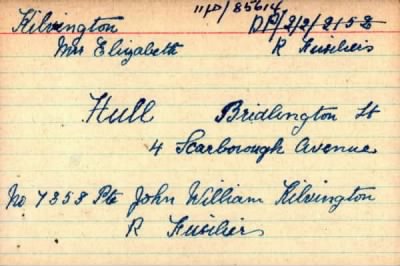 11P/85614
Kilvington DP/2/2/2152
Mrs Elizabeth R Fusiliers
Hull Bridlington St
4 Scarborough Avenue
No 7353 Pte John William Kilvington
R Fusiliers